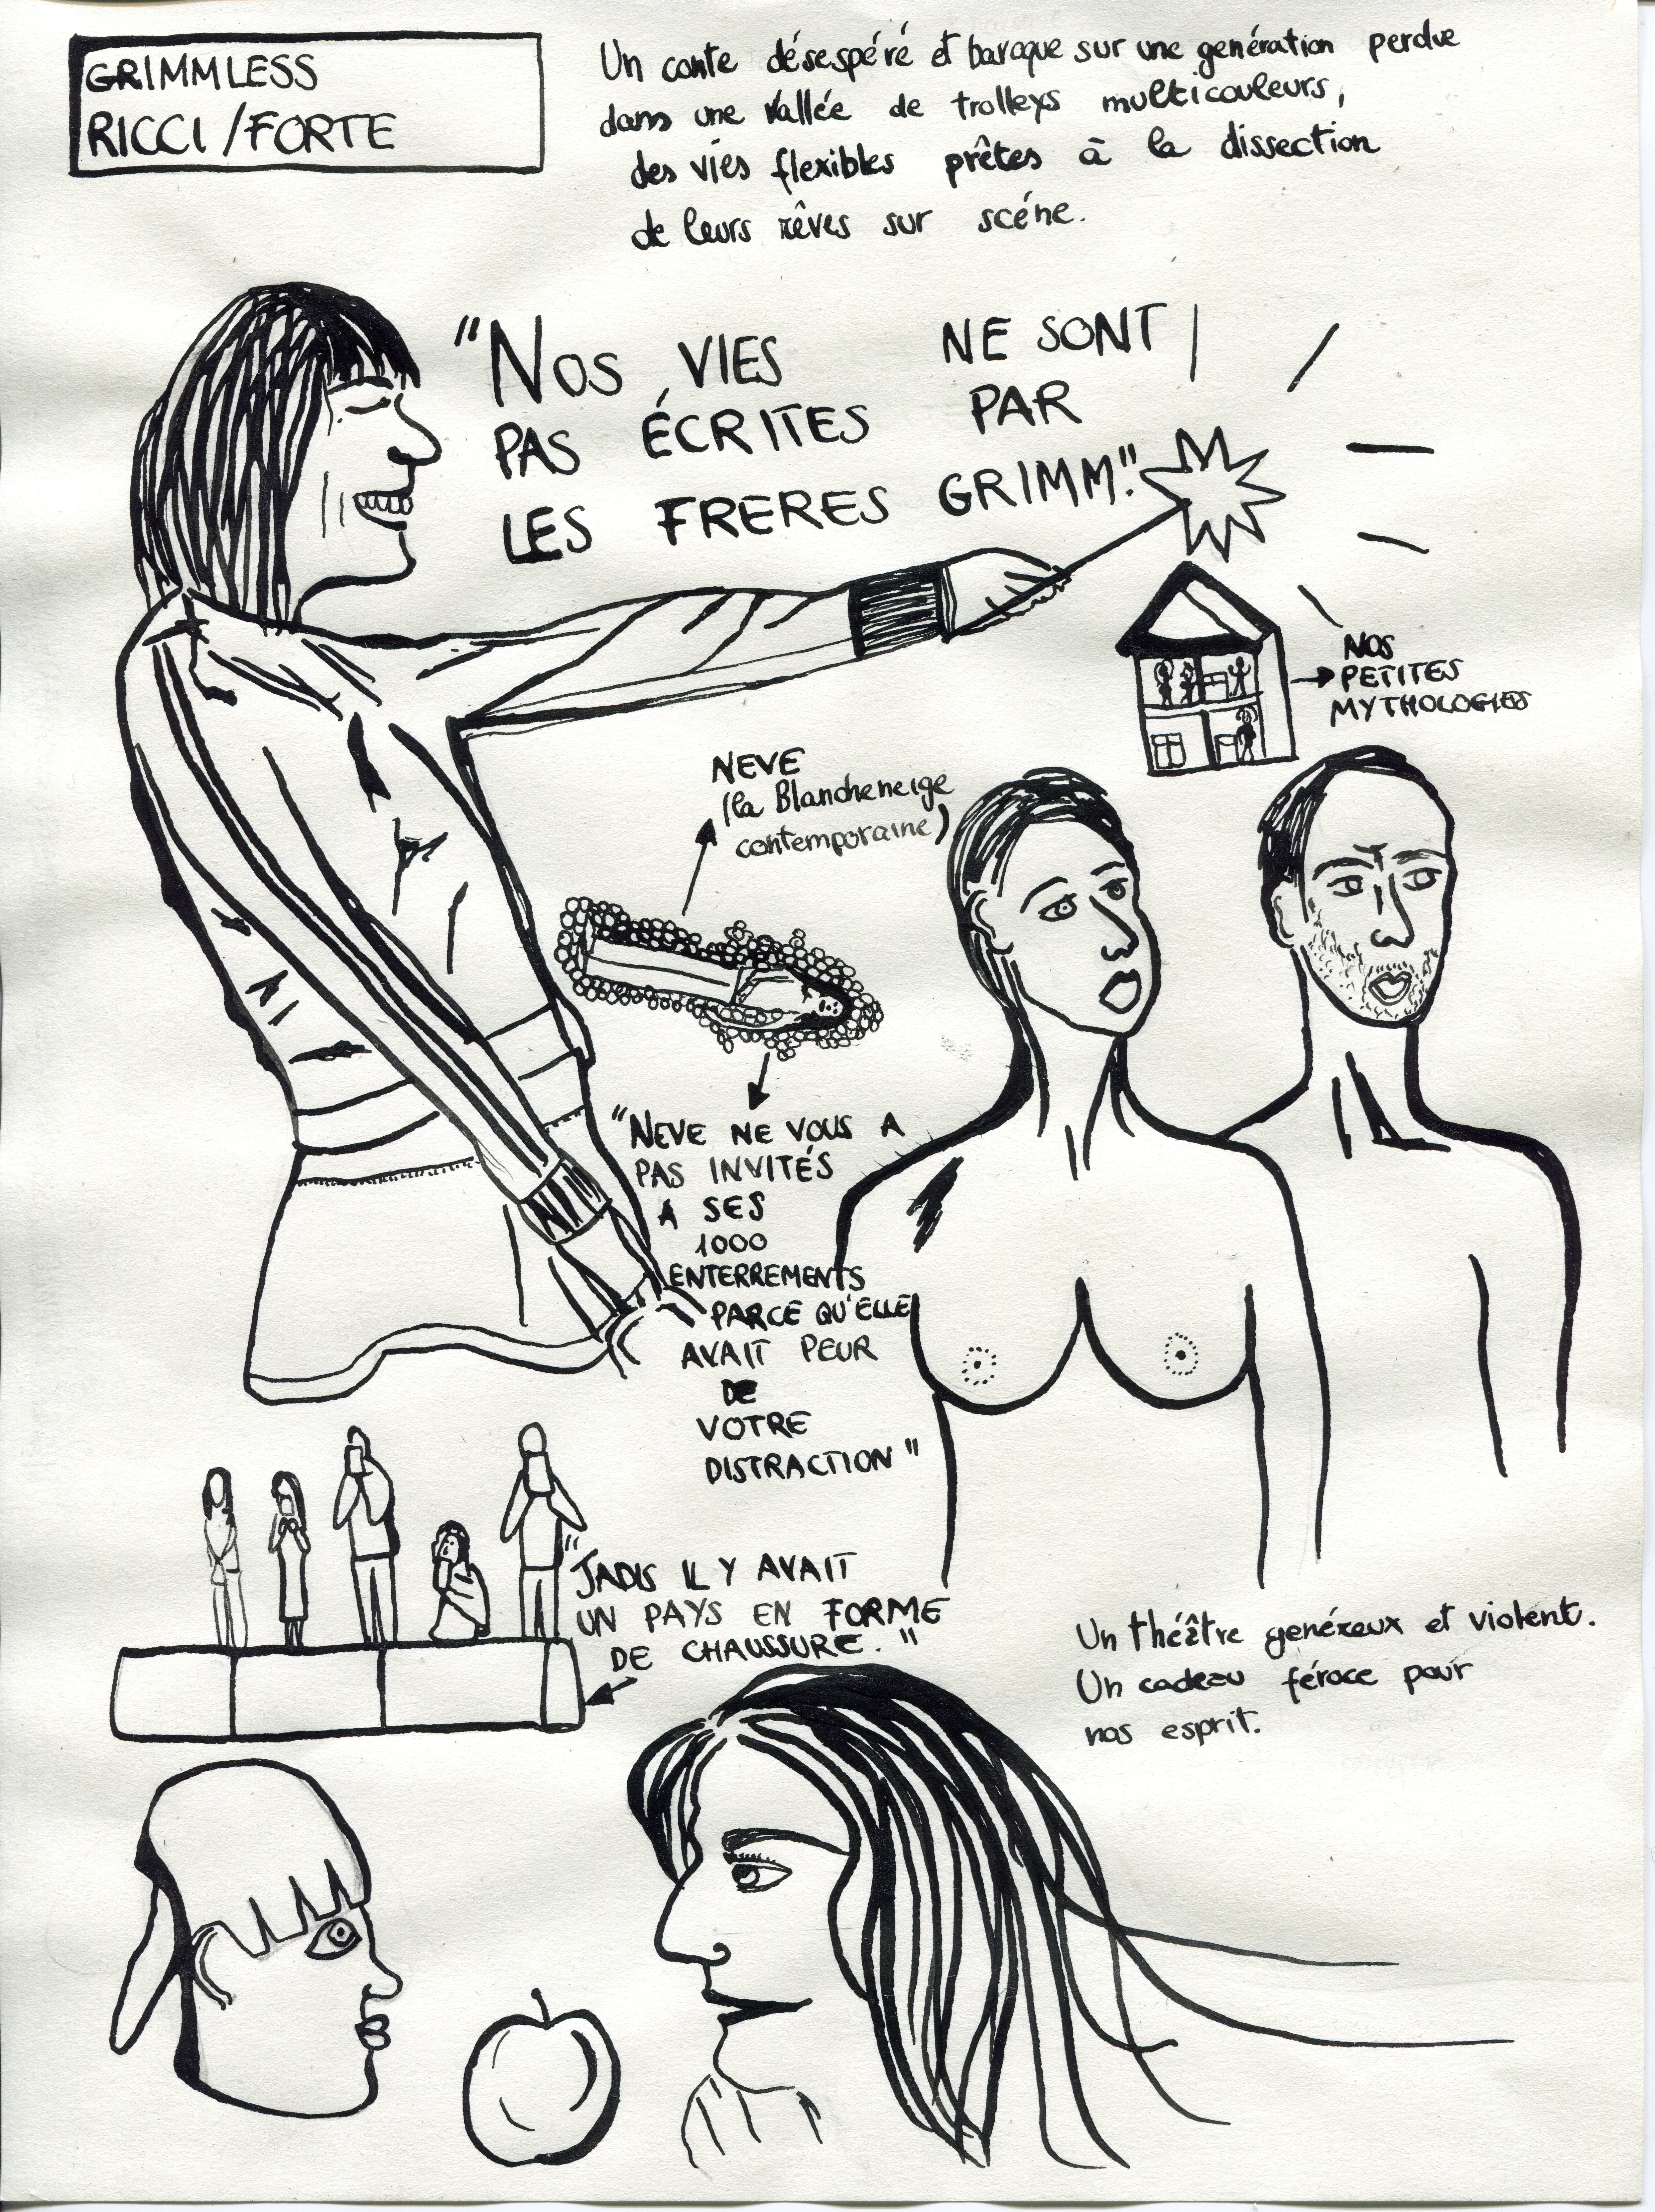 GRIMMLESS
RICCI/FORTE
Un conte désespéré et baroque sur une genération perdue
dans une vallée de trolleys multicouleurs,
des vies flexibles prêtes à la dissection
de leurs rêves sur scéne.
"NOS VIES NE SONT
PAS ÉCRITES PAR
LES FRERES GRIMM."
NOS
PETITES
MYTHOLOGIES
NEVE
(la Blancheneige
contemporaine)
"NEVE NE VOUS A
PAS INVITÉS
A SES
1000
ENTERREMENTS
PARCE QU'ELLE
AVAIT PEUR
DE
VOTRE
DISTRACTION"
"JADIS IL Y AVAIT
UN PAYS EN FORME
DE CHAUSSURE."
Un théâtre genéreux et violent.
Un cadeau féroce pour
nos esprit.